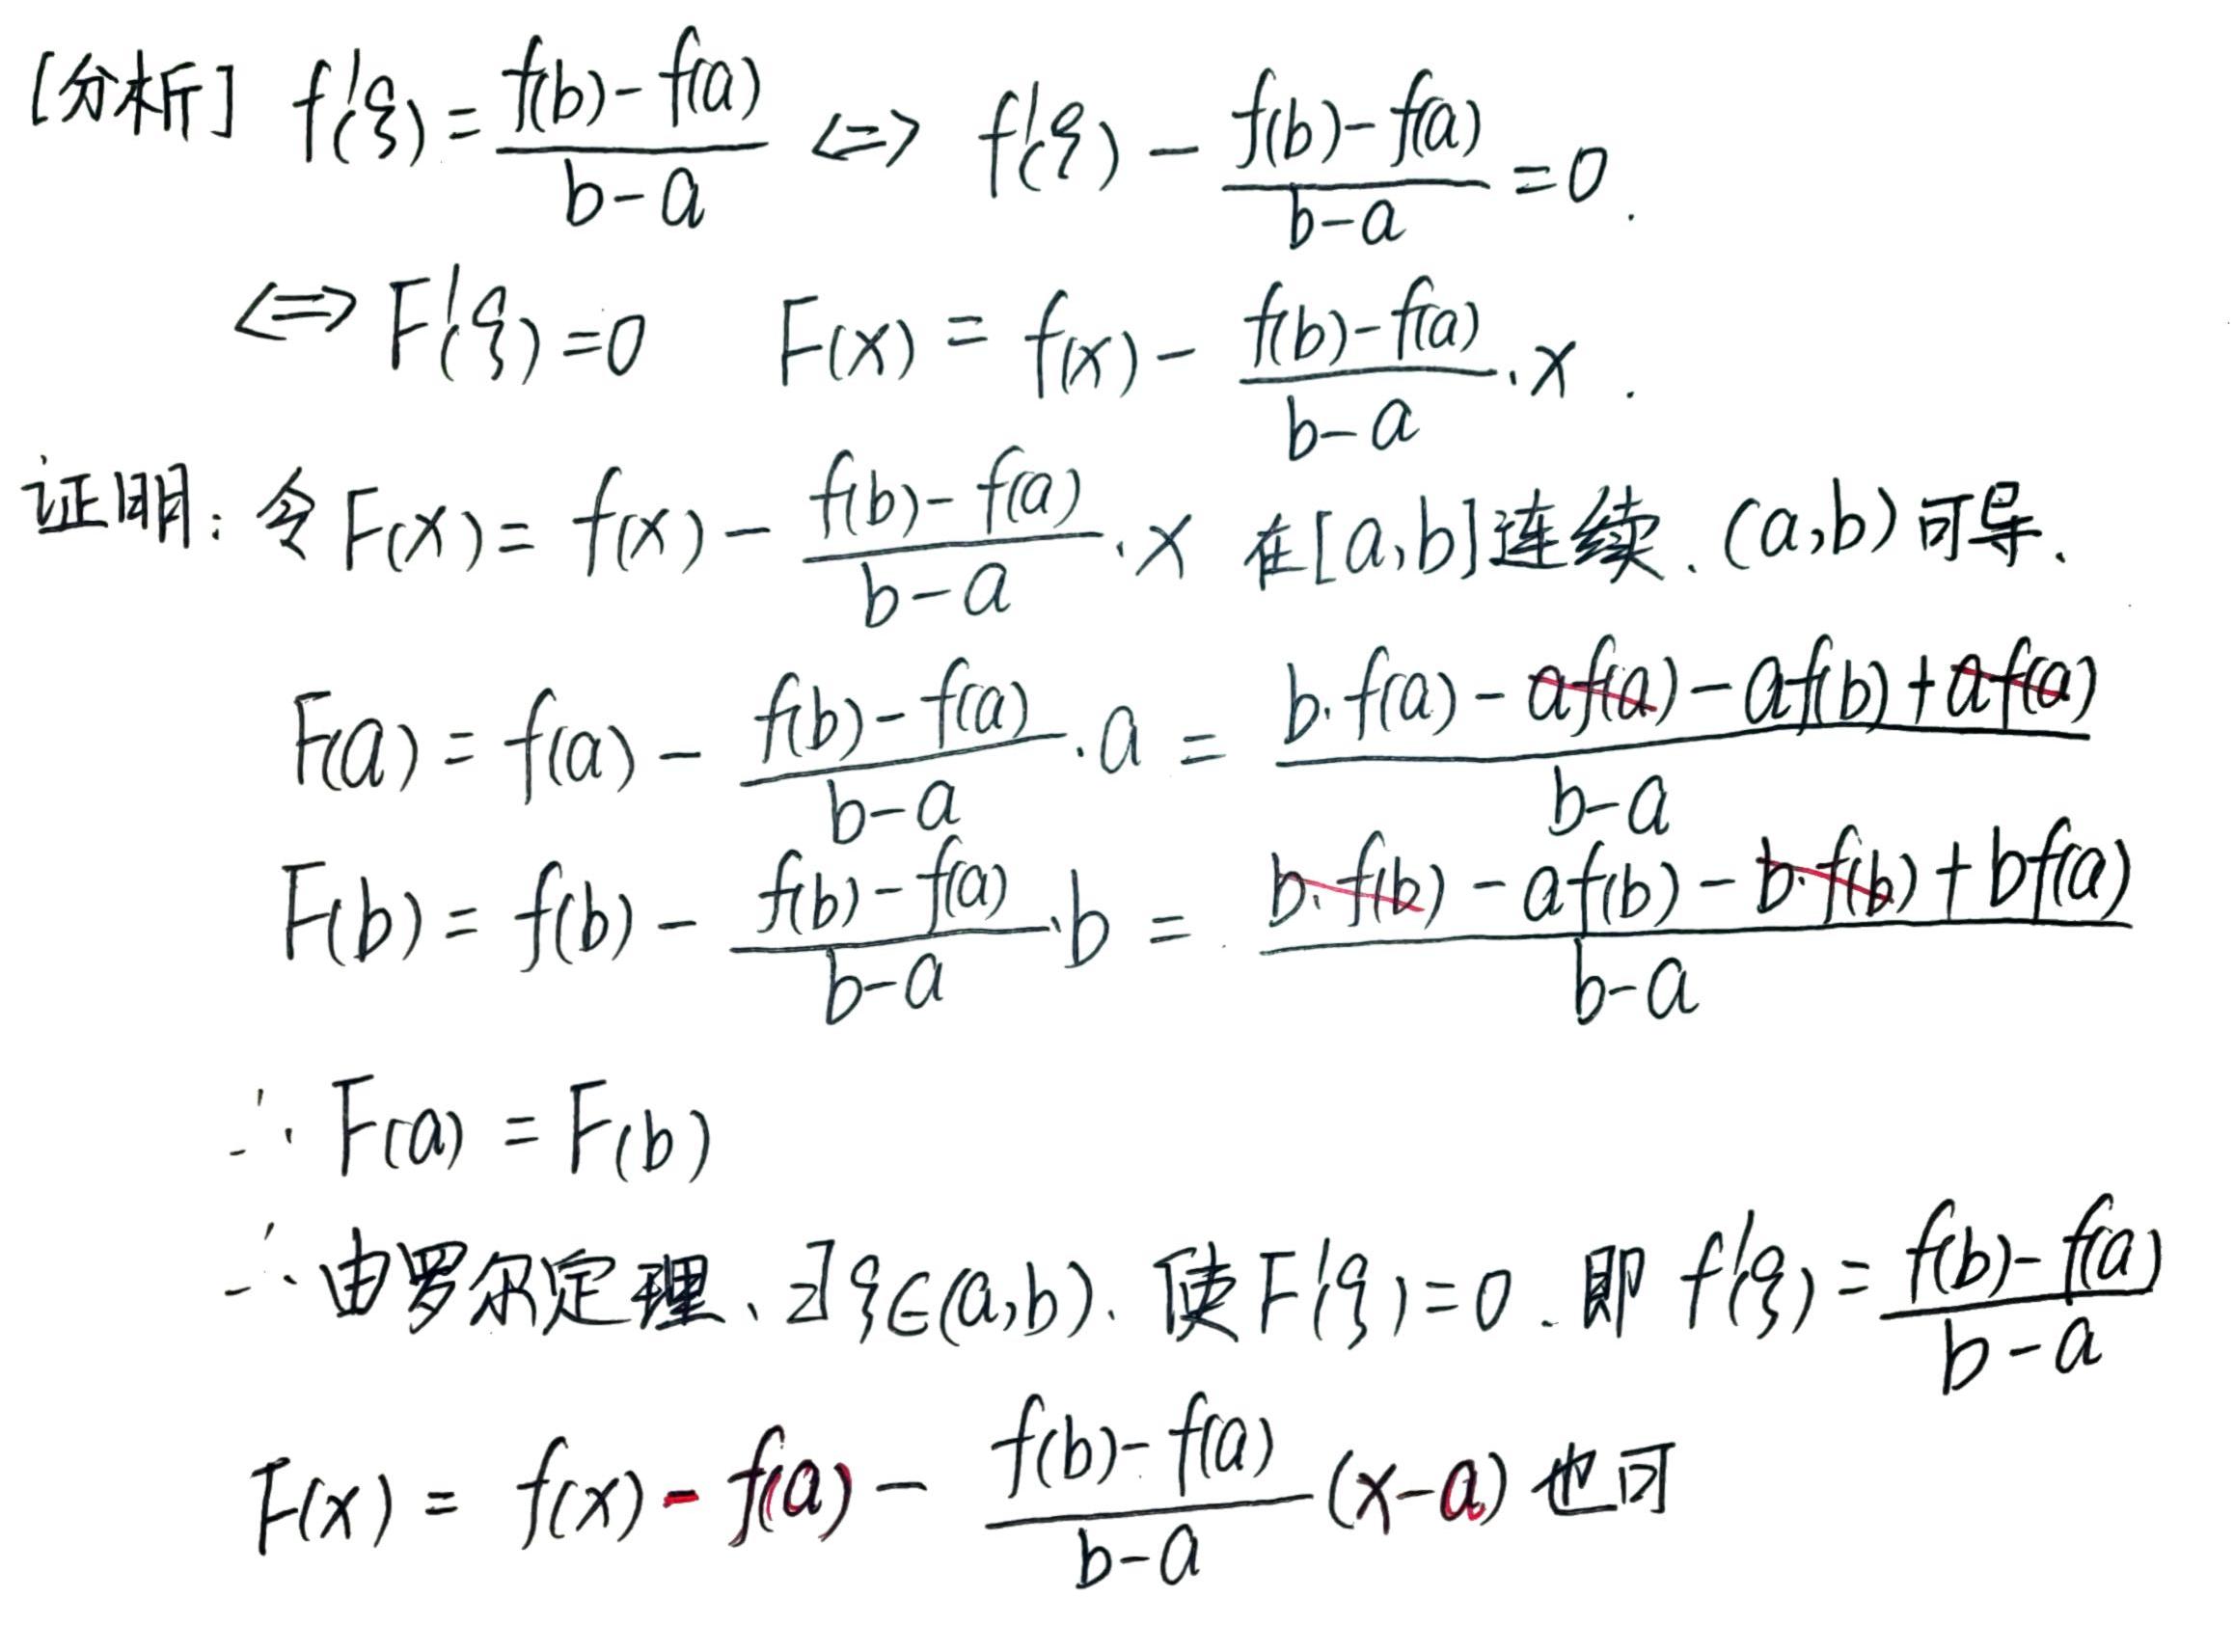 [分析] f'(ξ) = \frac{f(b)-f(a)}{b-a} <=> f'(ξ) - \frac{f(b)-f(a)}{b-a} = 0.
<=> F'(ξ) = 0 F(x) = f(x) - \frac{f(b)-f(a)}{b-a}·x.
证明: 令 F(x) = f(x) - \frac{f(b)-f(a)}{b-a}·x 在[a,b]连续. (a,b)可导.
F(a) = f(a) - \frac{f(b)-f(a)}{b-a}·a = \frac{b·f(a) - af(a) - af(b) + af(a)}{b-a}
F(b) = f(b) - \frac{f(b)-f(a)}{b-a}·b = \frac{b·f(b) - af(b) - b·f(b) + bf(a)}{b-a}
∴ F(a) = F(b)
∴ 由罗尔定理、∃ξ∈(a,b). 使F'(ξ)=0. 即 f'(ξ) = \frac{f(b)-f(a)}{b-a}
F(x) = f(x) - f(a) - \frac{f(b)-f(a)}{b-a}(x-a) 也可